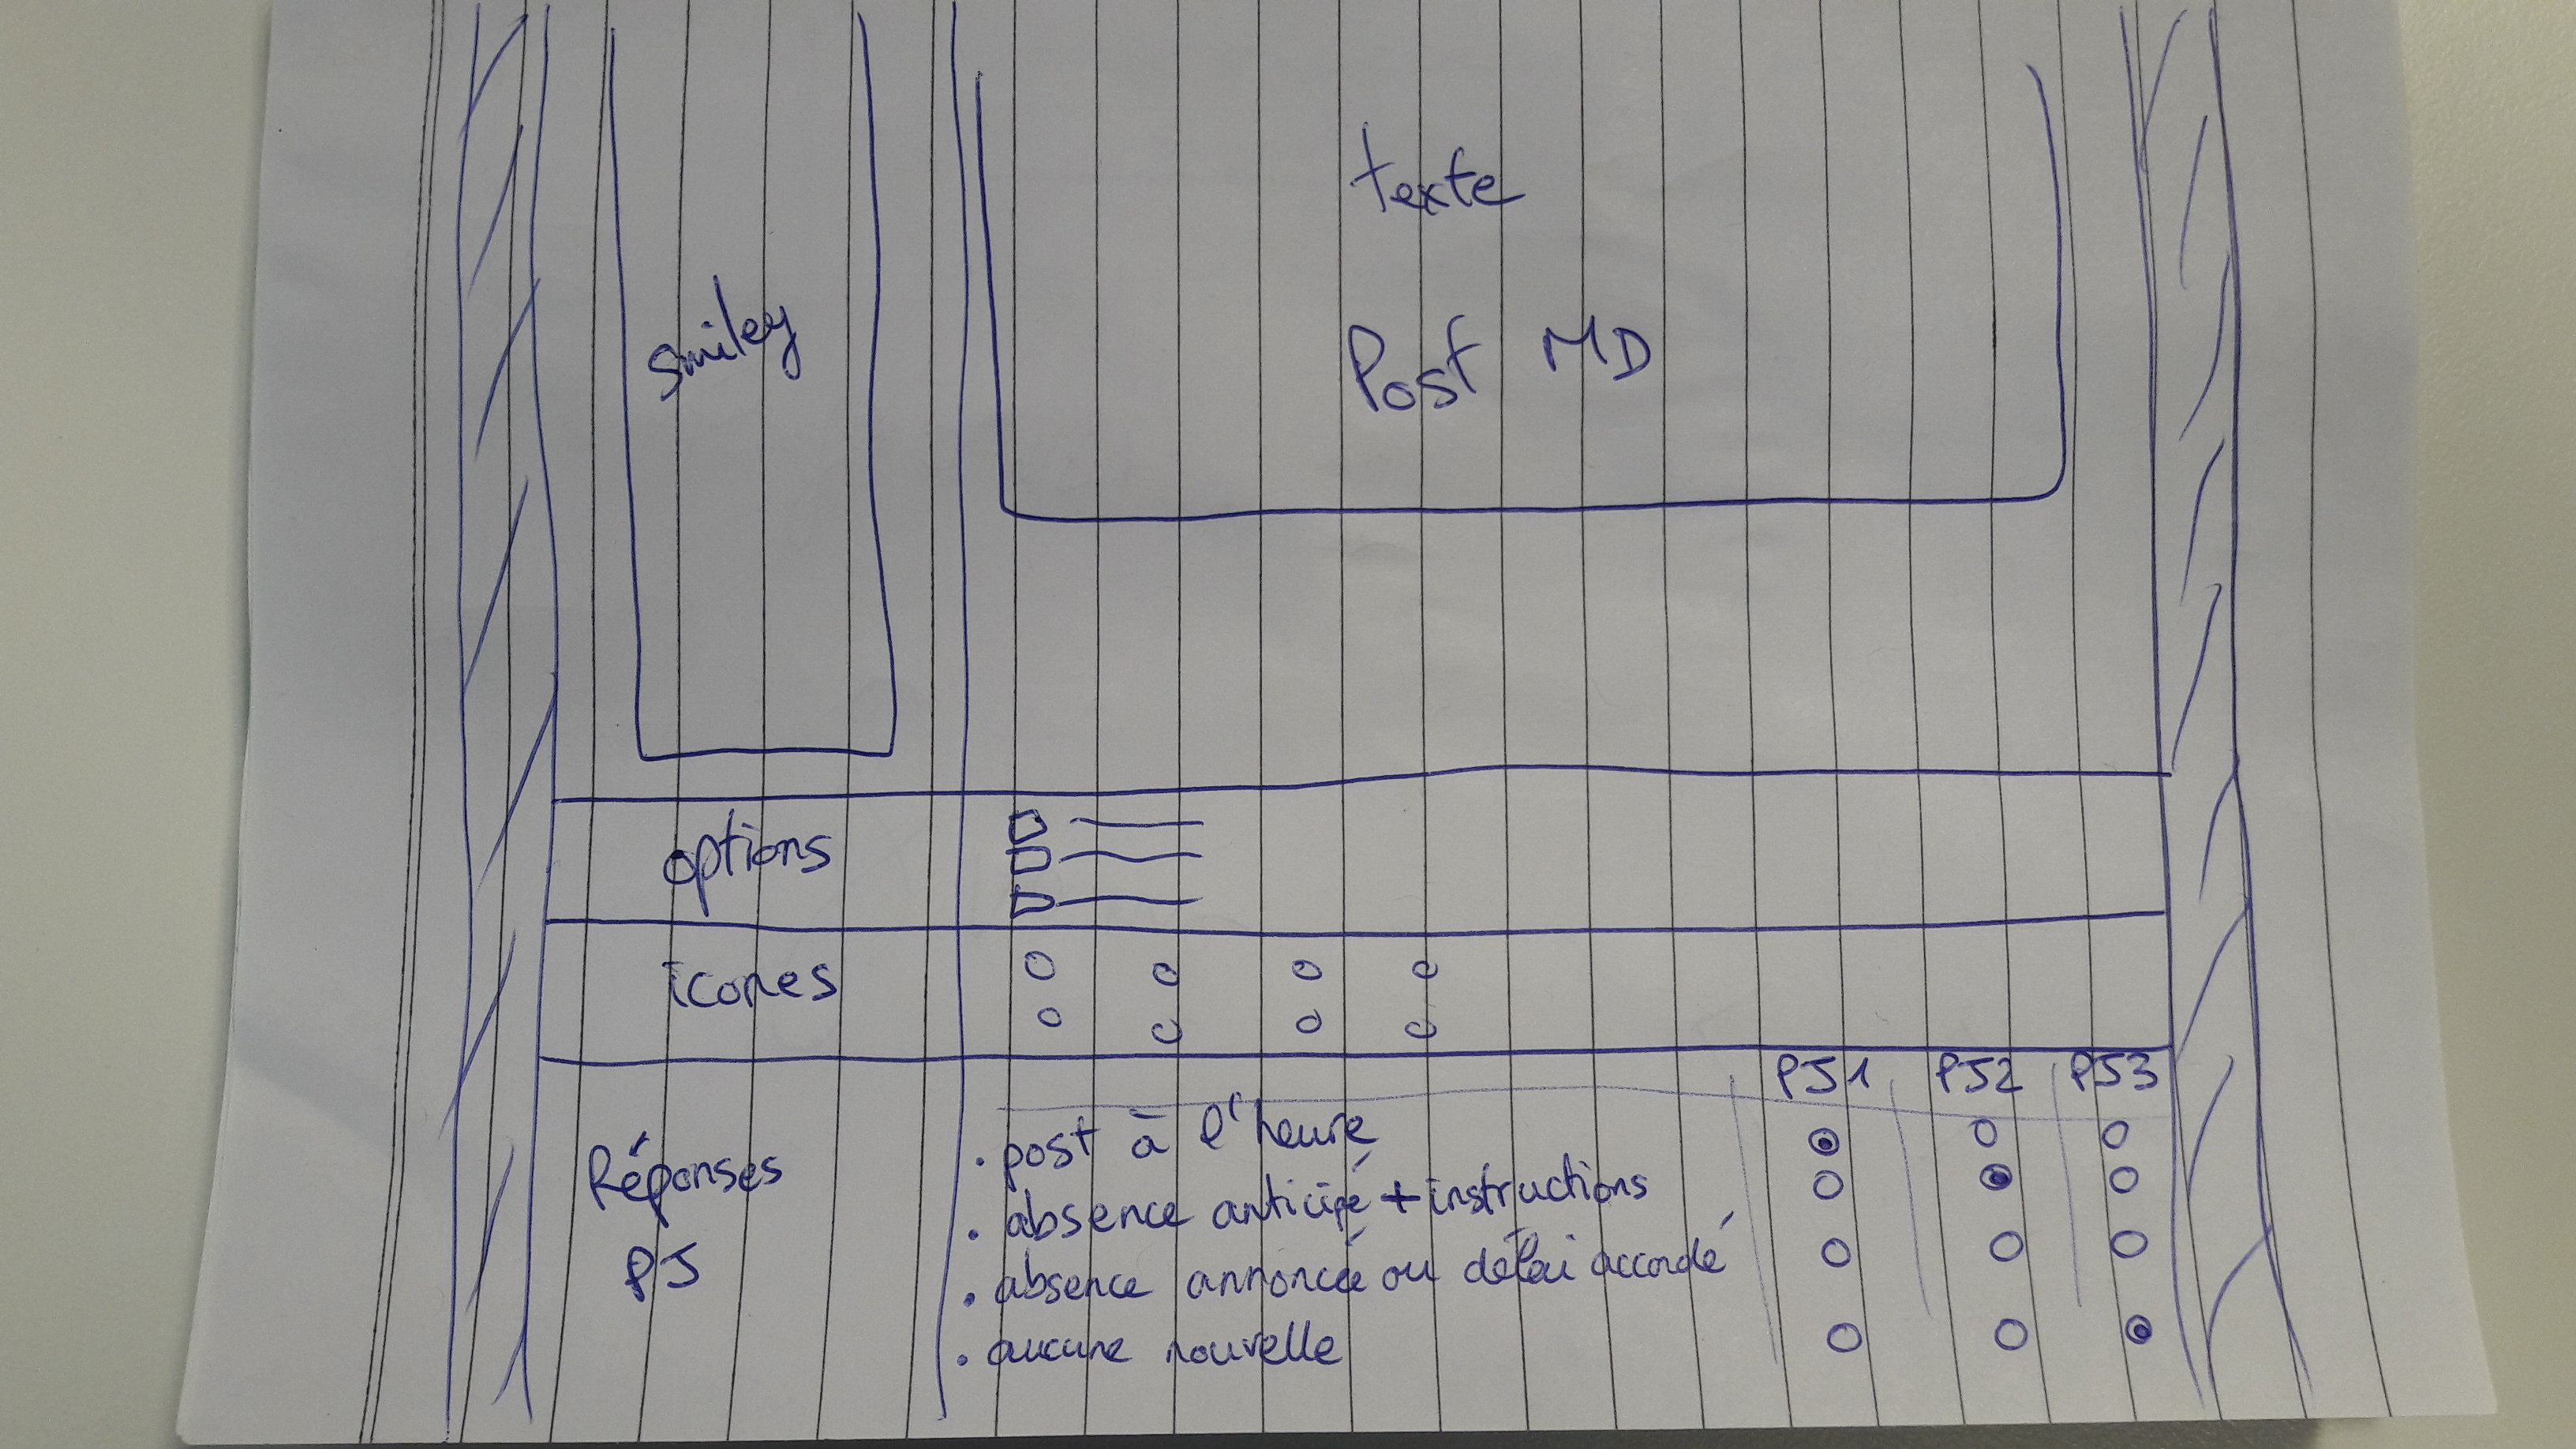 texte
Post MD
smiley
options
icones
PJ1 PJ2 PJ3
Réponses
PJ
. post à l'heure
. absence anticipé + instructions
. absence annoncée ou délai accordé
. aucune nouvelle